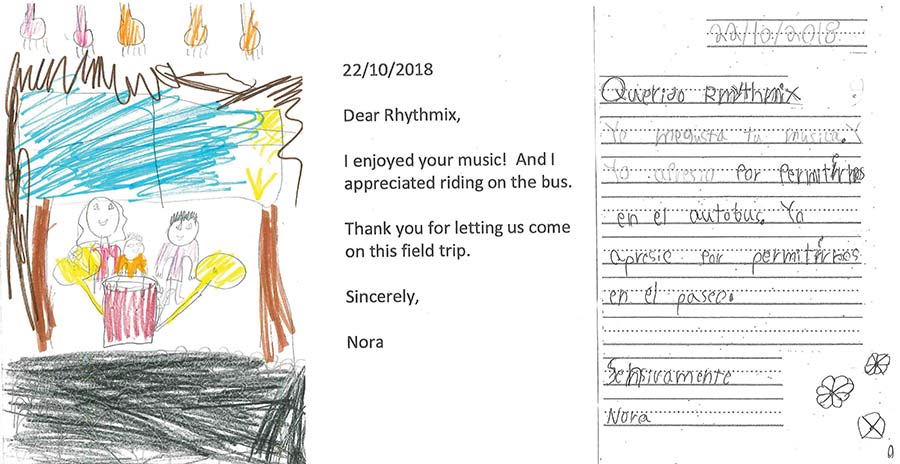 22/10/2018
Dear Rhythmix,
I enjoyed your music!  And I
appreciated riding on the bus.
Thank you for letting us come
on this field trip.
Sincerely,
Nora
22/10/2018
Querido Rhythmix
Yo megusta tu musica. Y
Yo apresio Por Permitirnos
en el autobus. Yo
apresie por permitirnos
en el paseo.
Nora